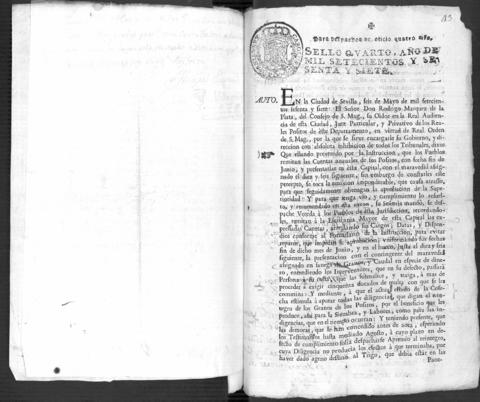 ✠
Para despachos de oficio quatro mrs.
SELLO QVARTO, AÑO DE
MIL SETECIENTOS Y SE-
SENTA Y SIETE.
AUTO. EN la Ciudad de Sevilla, seis de Mayo de mil setecien-
tos sesenta y siete: El Señor Don Rodrigo Marquez de la
Plata, del Consejo de S. Mag., su Oidor en la Real Audien-
cia de esta Ciudad, Juez Particular, y Privativo de los Rea-
les Positos de este Departamento, en virtud de Real Orden
de S. Mag., por la que se sirve encargarle su Gobierno, y di-
reccion con absoluta inhibicion de todos los Tribunales, dixo:
Que estando prevenido por la Instruccion, que los Pueblos
remitan las Cuentas annuales de sus Positos, con fecha fin de
Junio, y presentarlas en esta Capital, con el maravedi asig-
nado el dia y seis siguiente, sin embargo de constarles este
precepto, se toca la omision imponderable, que causa atrasso,
para que seguidamente obtengan la aprobacion de la Supe-
rioridad: Y para que tenga vio, y cumplimiento lo referi-
do, y recomendado en este aviso, su Señoria mandò, se des-
pache Vereda à los Pueblos de esta Jurisdiccion, recordando-
les, remitan à la Escribania Mayor de esta Capital las ex-
pressadas Cuentas, arreglando sus Cargos, Datas, y Dispen-
dios conforme al Formulario de la Instruccion, para evitar
reparos, que impidan su aprobacion; uniformando sus fechas
fin de dicho mes de Junio, y en el nueve, hasta al dia y seis
siguiente, la presentacion con el contingente del maravedi
assignado en fanega de Granos, y Caudal en especie de dine-
ro, entendidos los Interventores, que en su defecto, passarà
Persona à su costa, que las solemnize, y traiga, à mas de
proceder à exigir cinquenta ducados de multa con que se les
conmina: Y mediante, à que el actual estado de la Cose-
cha estimula à apurar todas las diligencias, que digan al reinte-
gro de los Granos de los Positos, por el beneficio que les
produce, assi para la Siembra, y Labores, como para sus in-
digencias, que en el tiempo ocurran: Y teniendo presente, que
las demoras, que se han concedido antes de aora, esperando
los Testimonios hasta mediado Agosto, à cuyo plazo en de-
fecto de cumplimiento solia despacharse Apremio al reintegro,
cuya Diligencia no producia los efectos à que terminaba, por
haver dado ageno destino al Trigo, que debia estàr en las
Pane-